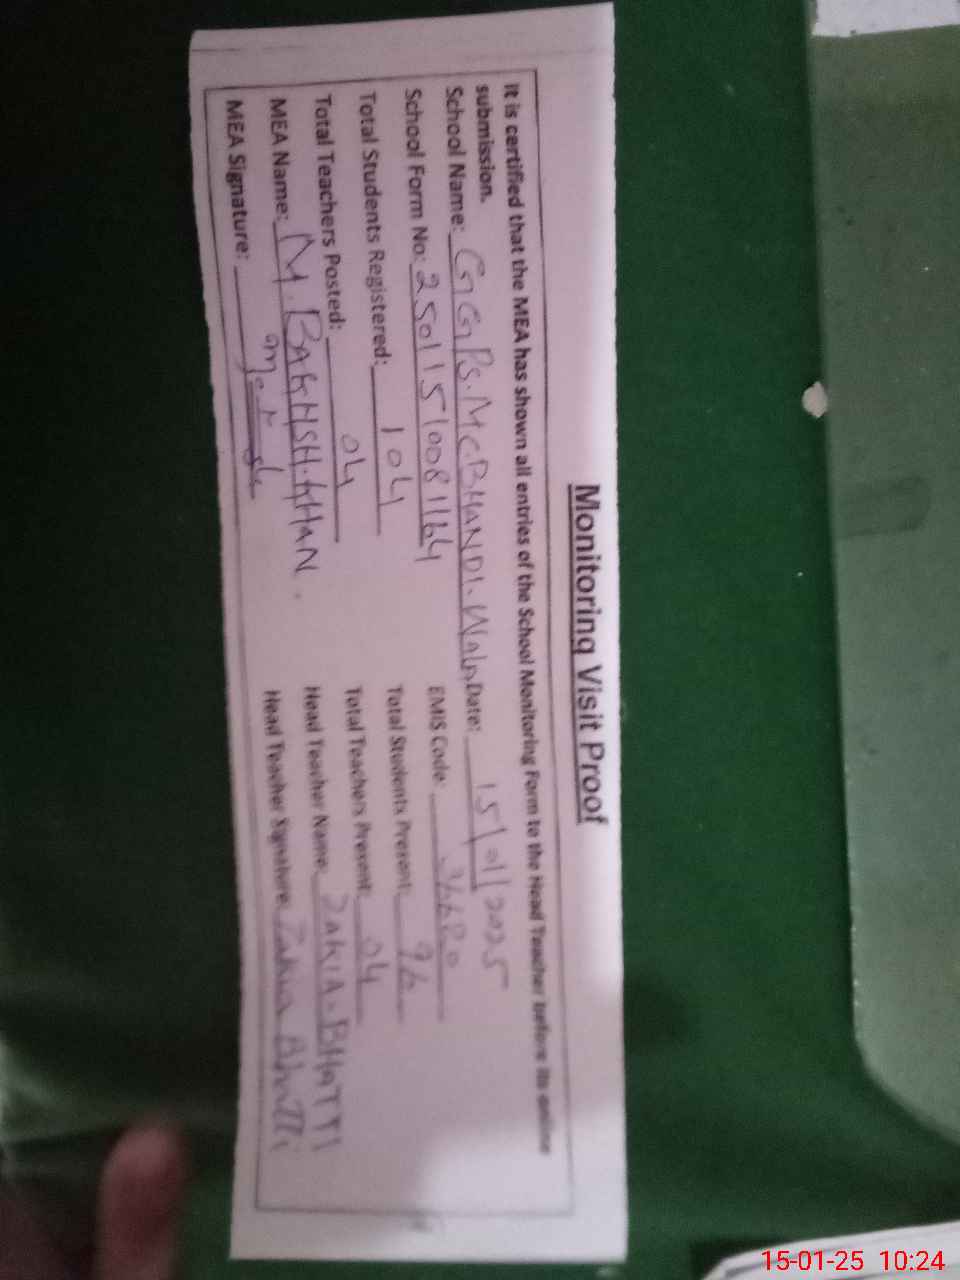 Monitoring Visit Proof
It is certified that the MEA has shown all entries of the School Monitoring Form to the Head Teacher before its online
submission.
School Name: GGPS.MC.BHANDI.Wala Date: 15/01/2025
School Form No: 25011510081164 EMIS Code:
Total Students Registered: 104 Total Students Present: 96
Total Teachers Posted: 04 Total Teachers Present: 04
MEA Name: M.BAKHSH.KHAN. Head Teacher Name: ZAKIA-BHATTI
MEA Signature: Head Teacher Signature: Zakia Bhatti
15-01-25 10:24